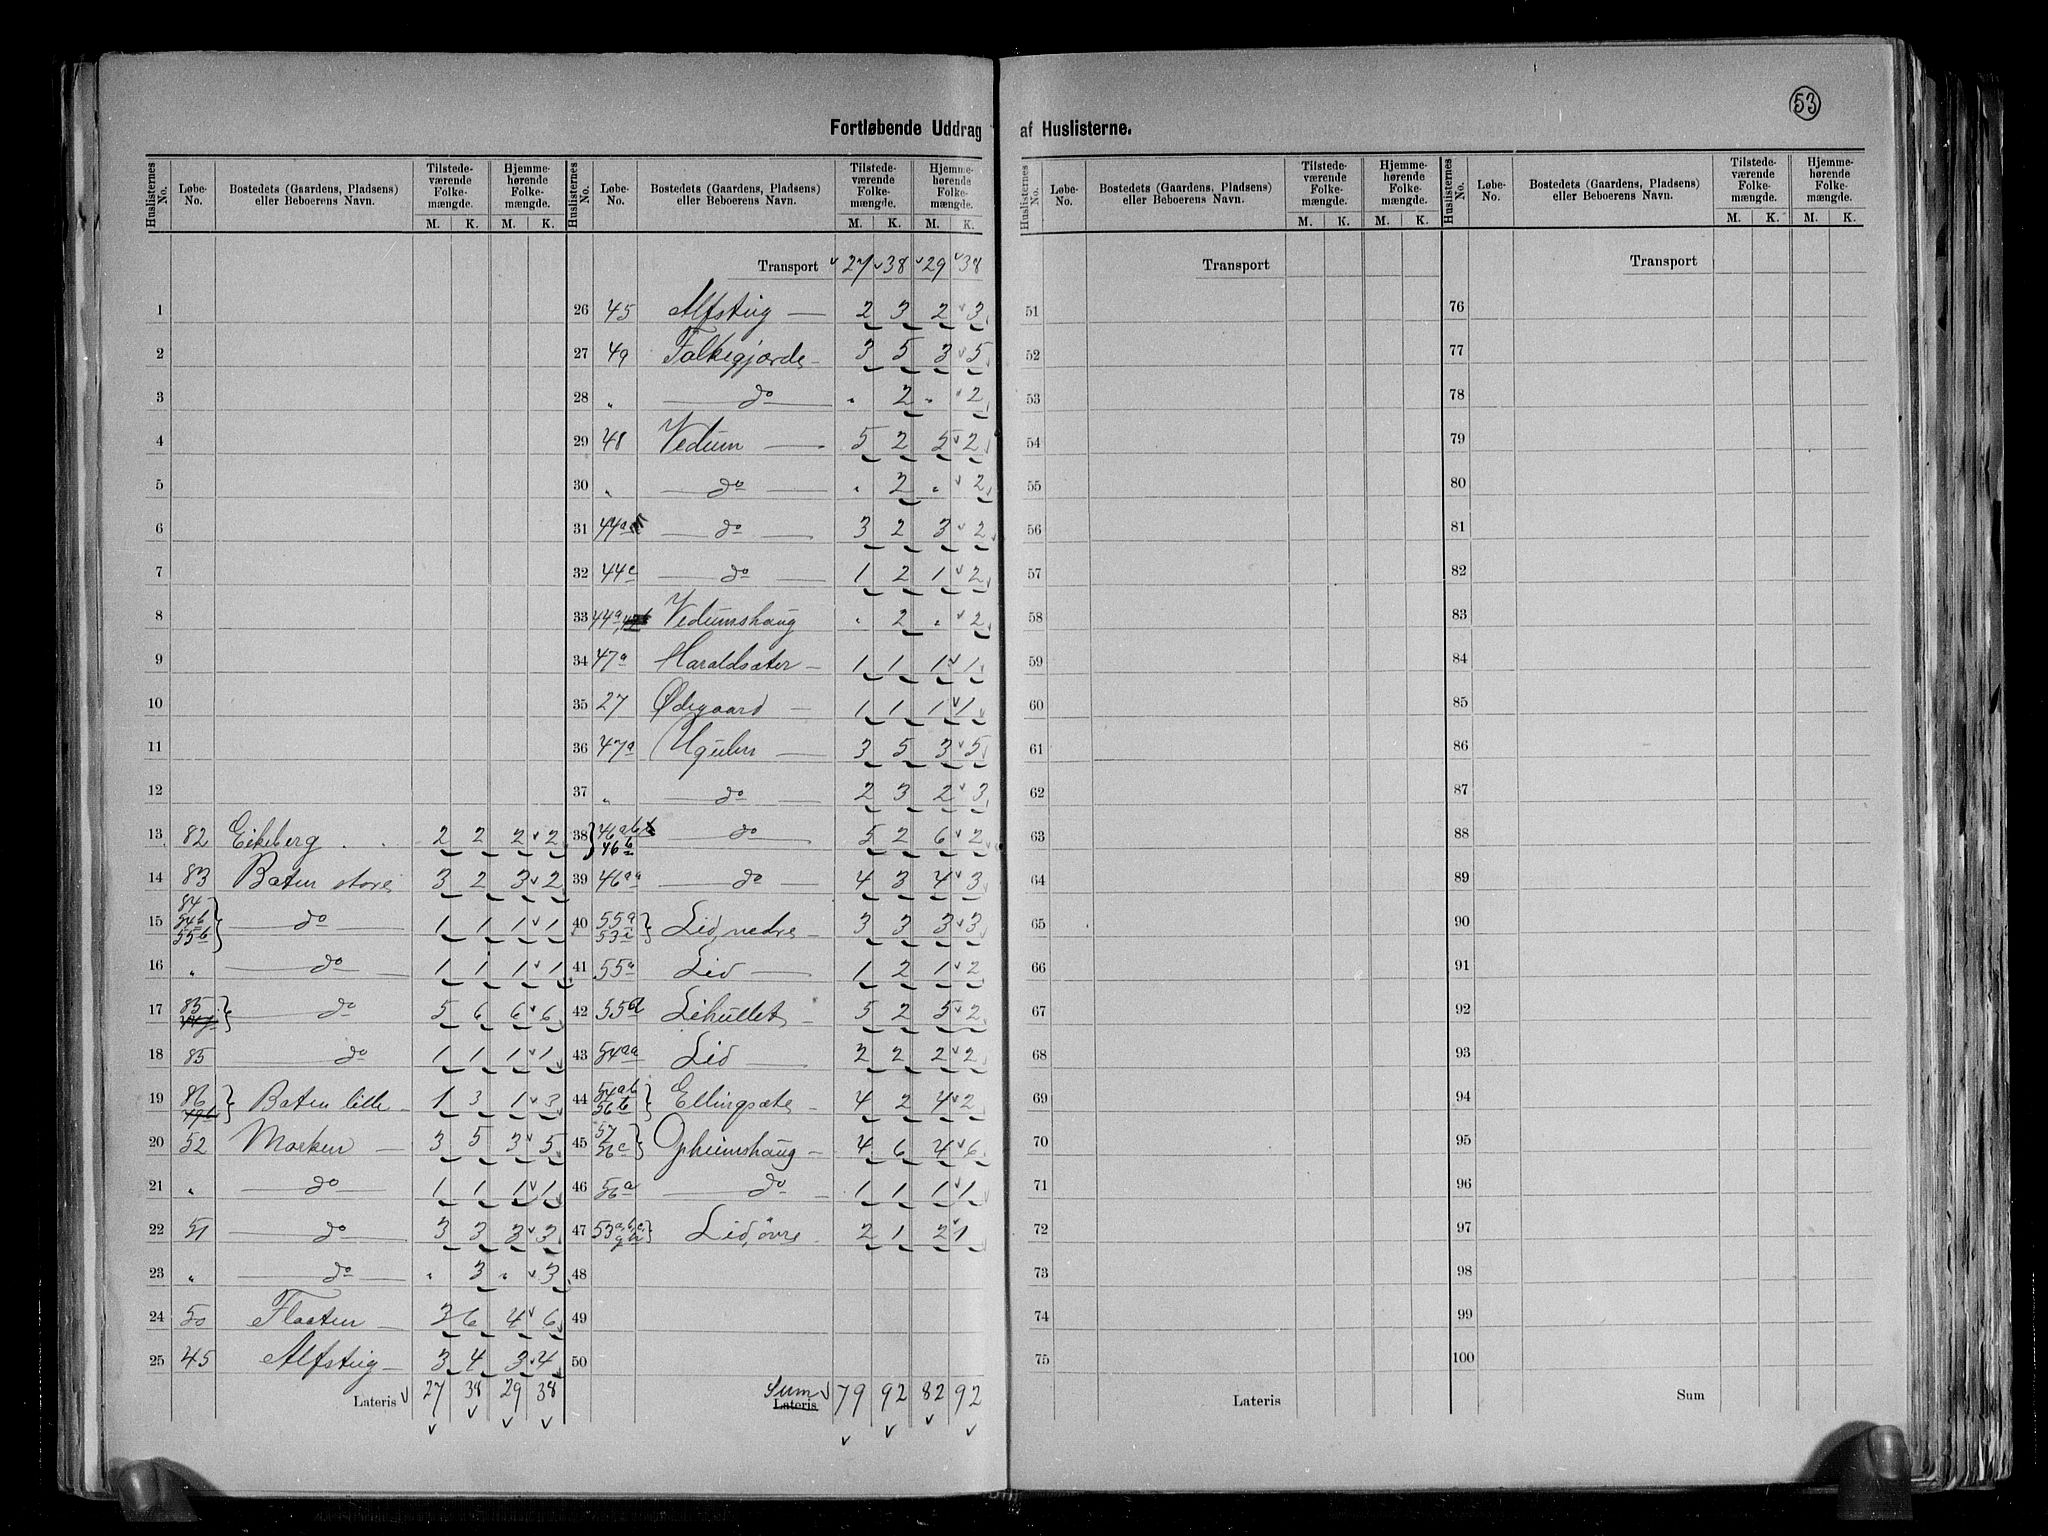 53
Fortløbende Uddrag af Huslisterne.
Huslisternes No. Løbe-No. Bostedets (Gaardens, Pladsens) eller Beboerens Navn. Tilstedeværende Folkemængde. M. K. Hjemmehørende Folkemængde. M. K.
1
2
3
4
5
6
7
8
9
10
11
12
13 82 Eikeberg 2 2 2 2
14 83 Baten store 3 2 3 2
15 84 54b 55b do 1 1 1 1
16 " do 1 1 1 1
17 85 do 5 6 6 6
18 85 do 1 1 1 1
19 86 Baten lille 1 3 1 3
20 52 Marken 3 5 3 5
21 " do 1 1 1 1
22 51 do 3 3 3 3
23 " do " 3 " 3
24 50 Flaaten 3 6 4 6
25 45 Alfstiig 3 4 3 4
Lateris 27 38 29 38
Huslisternes No. Løbe-No. Bostedets (Gaardens, Pladsens) eller Beboerens Navn. Tilstedeværende Folkemængde. M. K. Hjemmehørende Folkemængde. M. K.
Transport 27 38 29 38
26 45 Alfstiig 2 3 2 3
27 49 Falkegjerde 3 5 3 5
28 " do " 2 " 2
29 48 Vedum 5 2 5 2
30 " do " 2 " 2
31 44a do 3 2 3 2
32 44c do 1 2 1 2
33 44a Vedumshaug " 2 " 2
34 47a Haraldsæter 1 1 1 1
35 27 Ødegaard 1 1 1 1
36 47a Ugulen 3 5 3 5
37 " do 2 3 2 3
38 46ab 46b do 5 2 6 2
39 46aa do 4 3 4 3
40 55a 53i Lid, nedre 3 3 3 3
41 55a Lid 1 2 1 2
42 55a Lihullet 5 2 5 2
43 54aa Lid 2 2 2 2
44 54ab 56b Ellingsæte 4 2 4 2
45 57 56c Opheimshaug 4 6 4 6
46 56a do 1 1 1 1
47 53 Lid, øvre 2 1 2 1
48
49
50
Sum Lateris 79 92 82 92
Huslisternes No. Løbe-No. Bostedets (Gaardens, Pladsens) eller Beboerens Navn. Tilstedeværende Folkemængde. M. K. Hjemmehørende Folkemængde. M. K.
Transport
51
52
53
54
55
56
57
58
59
60
61
62
63
64
65
66
67
68
69
70
71
72
73
74
75
Lateris
Huslisternes No. Løbe-No. Bostedets (Gaardens, Pladsens) eller Beboerens Navn. Tilstedeværende Folkemængde. M. K. Hjemmehørende Folkemængde. M. K.
Transport
76
77
78
79
80
81
82
83
84
85
86
87
88
89
90
91
92
93
94
95
96
97
98
99
100
Sum